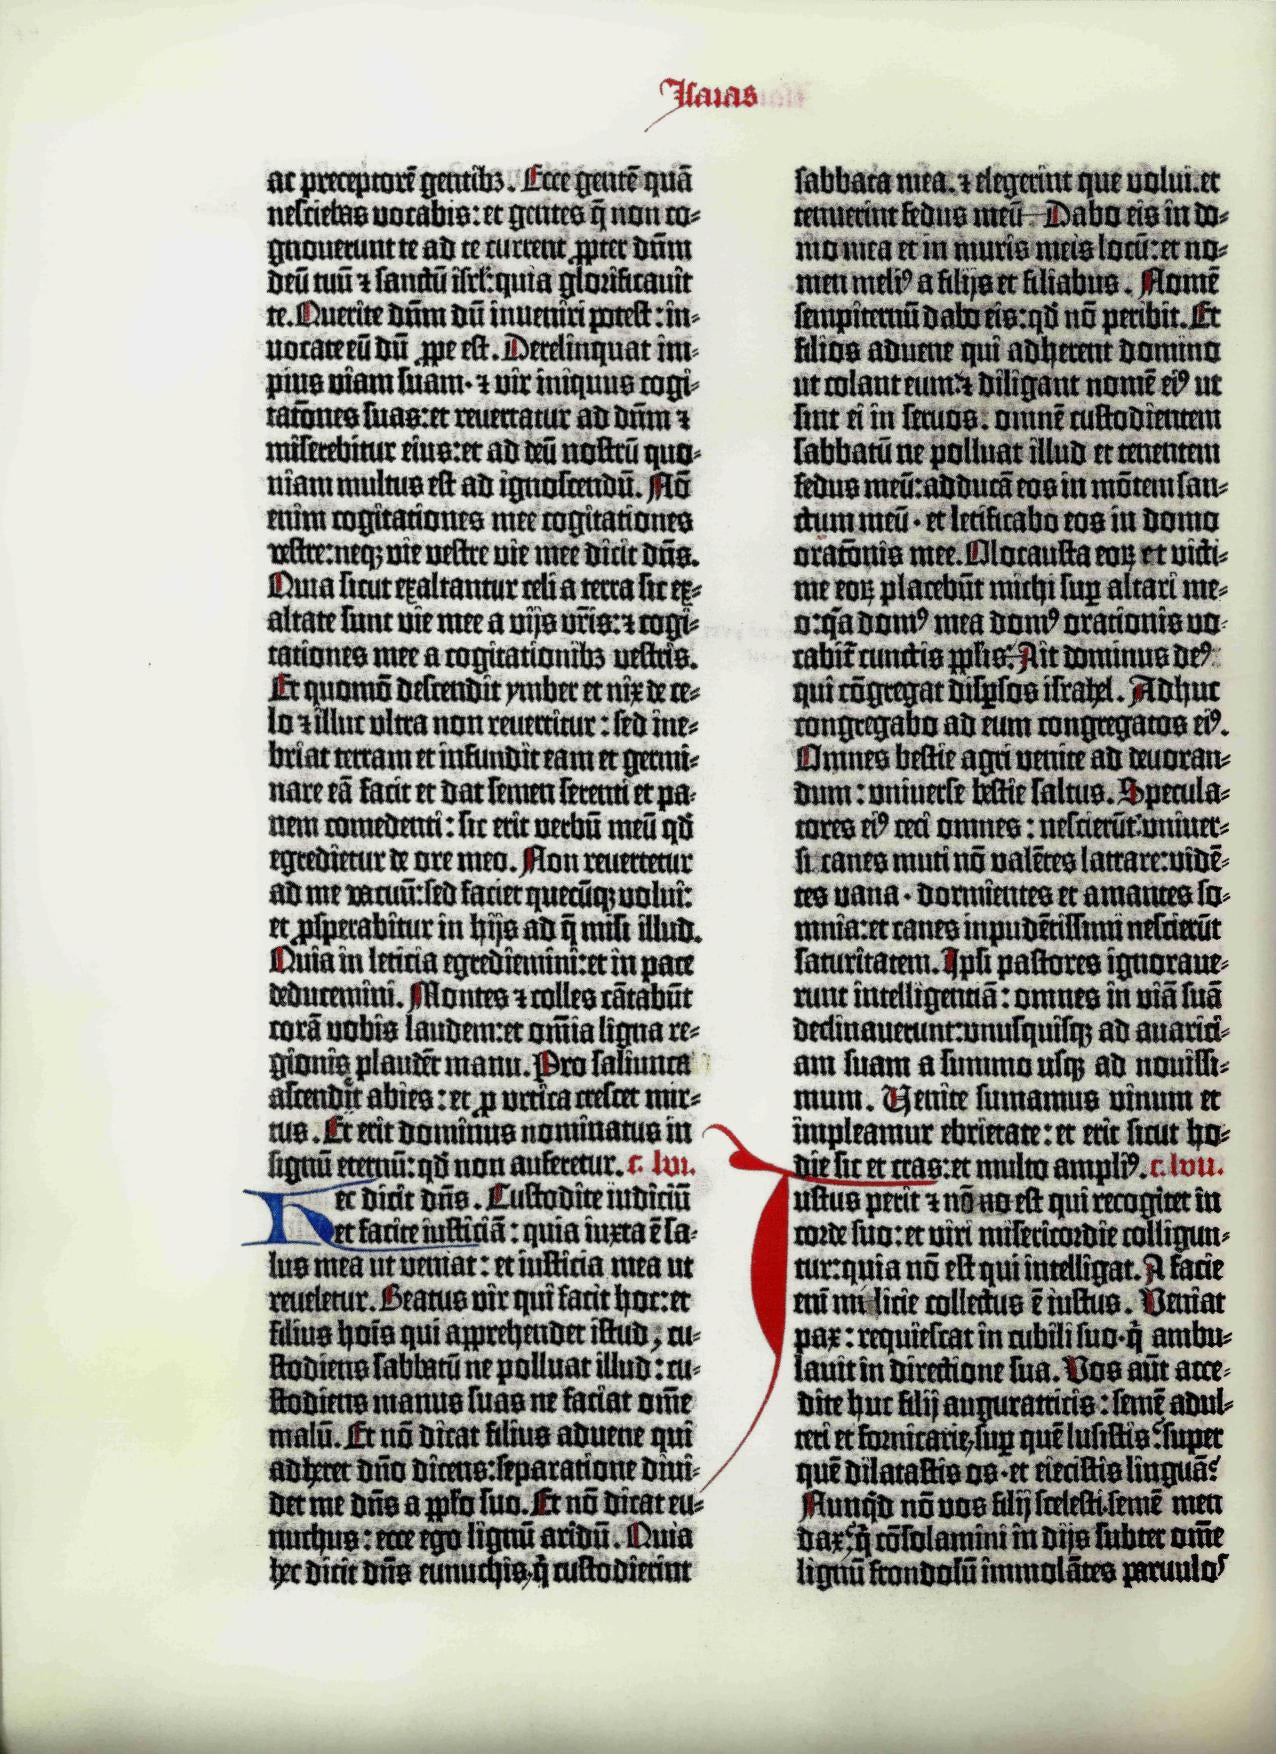 Isaias
ac preceptorē gentibꝫ. Ecce gentē quā
nesciebas vocabis: et gentes q̄ non co-
gnoverunt te ad te current ꝓpter dn̄m
deū tuū ⁊ sanctū isrl̄: quia glorificavit
te. Querite dn̄m dū inveniri potest: in-
vocate eū dū ꝓpe est. Derelinquat im-
pius viam suam · ⁊ vir iniquus cogi-
tat̄ones suas: et revertatur ad dn̄m ⁊
miserebitur eius: et ad deū nostrū quo-
niam multus est ad ignoscendū. Nō
enim cogitationes mee cogitationes
vestre: neqꝫ vie vestre vie mee dicit dn̄s.
Quia sicut exaltantur celi a terra sic ex-
altate sunt vie mee a vijs vr̄is: ⁊ cogi-
tationes mee a cogitationibꝫ vestris.
Et quomō descendit ymber et nix de ce-
lo ⁊ illuc ultra non revertitur: sed ine-
briat terram et infundit eam et germi-
nare eā facit et dat semen serenti et pa-
nem comedenti: sic erit verbū meū qd̄
egredietur de ore meo. Non revertetur
ad me vacuū: sed faciet quecūqꝫ volui:
et ꝓsperabitur in hijs ad q̄ misi illud.
Quia in leticia egrediemini: et in pace
deducemini. Montes ⁊ colles cātabūt
corā vobis laudem: et om̄ia ligna re-
gionis plaudēt manu. Pro saliunca
ascendit abies: et ꝓ urtica crescet mir-
tus. Et erit dominus nominatus in
signū eternū: qd̄ non auferetur. c. lvi.
Hec dicit dn̄s. Custodite iudiciū
et facite iusticiā: quia iuxta ē sa-
lus mea ut veniat: et iusticia mea ut
reveletur. Beatus vir qui facit hoc: et
filius hoīs qui apprehendet istud, cu-
stodiens sabbatū ne polluat illud: cu-
stodiens manus suas ne faciat om̄e
malū. Et nō dicat filius advene qui
adheret dn̄o dicens: separatione divi-
det me dn̄s a ppl̄o suo. Et nō dicat eu-
nuchus: ecce ego lignū aridū. Quia
hec dicit dn̄s eunuchis, q̄ custodierint
sabbata mea. ⁊ elegerint que volui. et
tenuerint fedus meū Dabo eis in do-
mo mea et in muris meis locū: et no-
men meliꝰ a filijs et filiabus. Nomē
sempiternū dabo eis: qd̄ nō peribit. Et
filios advene qui adherent domino
ut colant eum: ⁊ diligant nomē eiꝰ ut
sint ei in servos. omnē custodientem
sabbatū ne polluat illud et tenentem
fedus meū: adducā eos in mōtem san-
ctum meū · et letificabo eos in domo
orat̄onis mee. Olocausta eoꝝ et victi-
me eoꝝ placebūt michi suꝑ altari me-
o: q̄a domꝰ mea domꝰ orationis vo-
cabit̄ cunctis ppl̄is. Ait dominus deꝰ
qui cōgregat disꝑsos israhel. Adhuc
congregabo ad eum congregatos eiꝰ.
Omnes bestie agri venite ad devoran-
dum: universe bestie saltus. Specula-
tores eiꝰ ceci omnes: nescierūt: univer-
si canes muti nō valētes latrare: vidē-
tes vana · dormientes et amantes so-
mnia: et canes inpudētissimi nescierūt
saturitatem. Ipsi pastores ignorave-
runt intelligentiā: omnes in viā suā
declinaverunt: unusquisqꝫ ad avarici-
am suam a summo usqꝫ ad novissi-
mum. Venite sumamus vinum et
impleamur ebrietate: et erit sicut ho-
die sic et cras: et multo ampliꝰ. c. lvii.
Iustus perit ⁊ nō no est qui recogitet in
corde suo: et viri misericordie colligun-
tur: quia nō est qui intelligat. A facie
eni m licie collectus ē iustus. Veniat
pax: requiescat in cubili suo · q̄ ambu-
lavit in directione sua. Vos aūt acce-
dite huc filij auguratricis: semē adul-
teri et fornicarie, suꝑ quē lusistis: super
quē dilatastis os · et eiecistis linguā:
Nunqd̄ nō vos filij scelesti. semē men
dax, q̄ cōsolamini in dijs subter om̄e
lignū frondosū immolātes parvulos